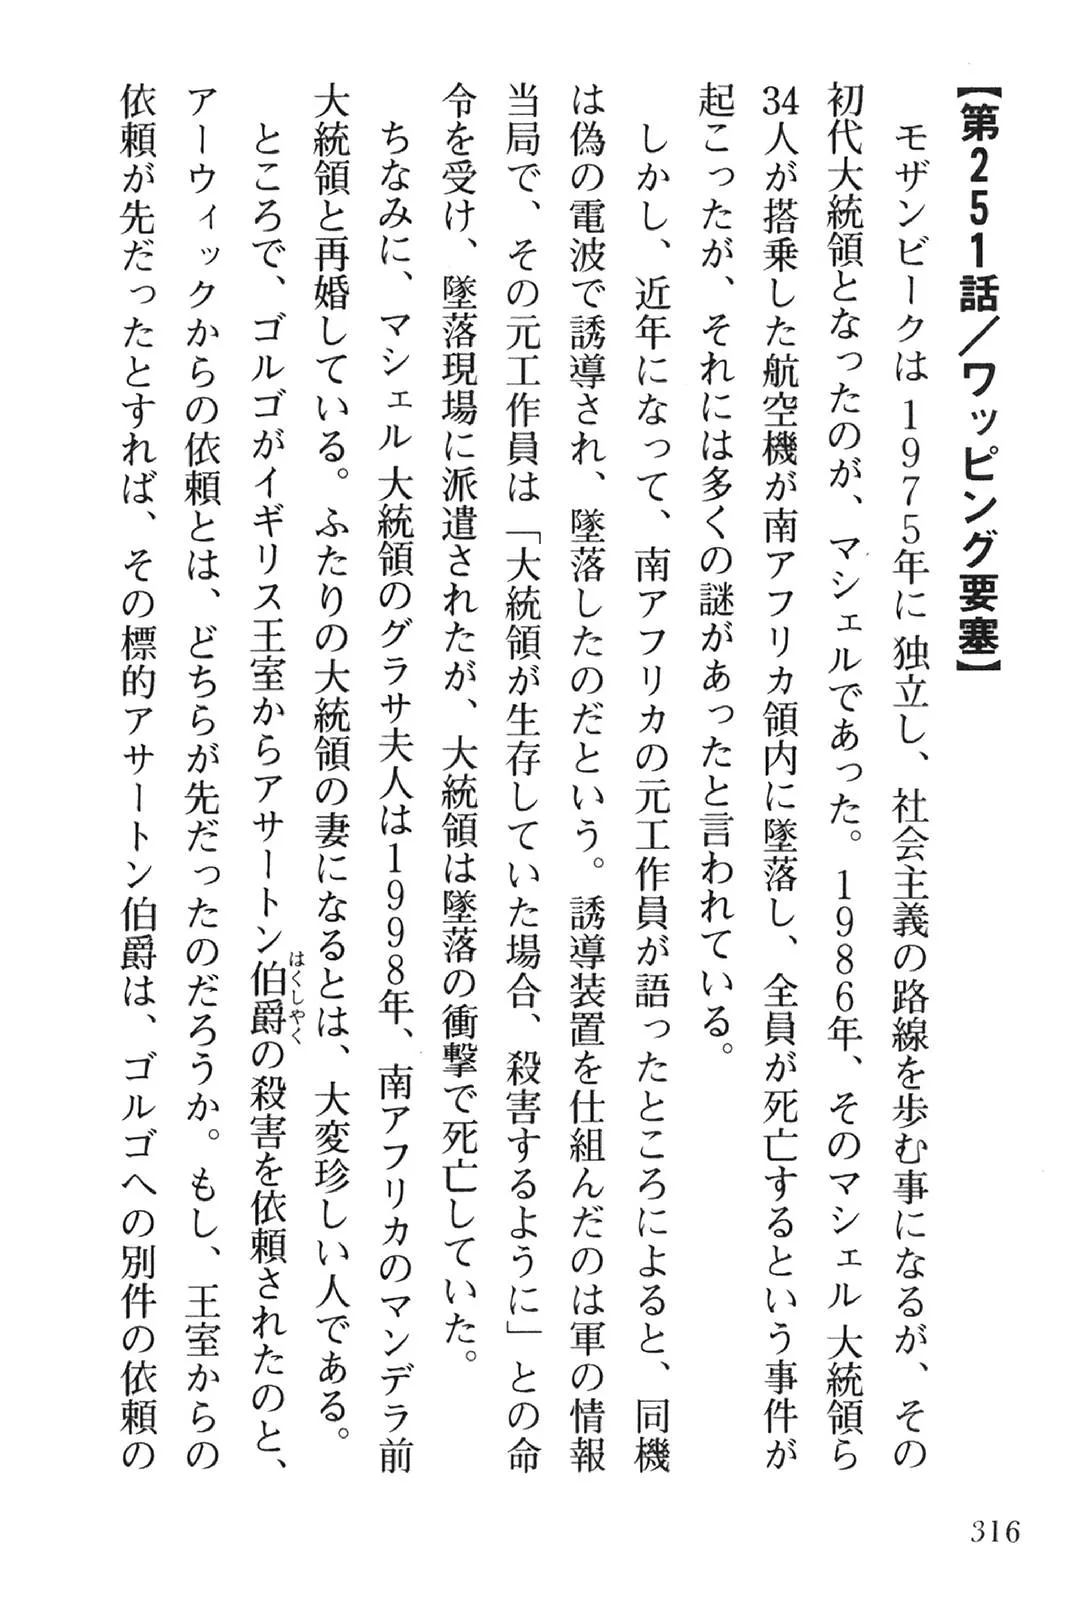 【第251話／ワッピング要塞】
モザンビークは1975年に独立し、社会主義の路線を歩む事になるが、その
初代大統領となったのが、マシェルであった。1986年、そのマシェル大統領ら
34人が搭乗した航空機が南アフリカ領内に墜落し、全員が死亡するという事件が
起こったが、それには多くの謎があったと言われている。
しかし、近年になって、南アフリカの元工作員が語ったところによると、同機
は偽の電波で誘導され、墜落したのだという。誘導装置を仕組んだのは軍の情報
当局で、その元工作員は「大統領が生存していた場合、殺害するように」との命
令を受け、墜落現場に派遣されたが、大統領は墜落の衝撃で死亡していた。
ちなみに、マシェル大統領のグラサ夫人は1998年、南アフリカのマンデラ前
大統領と再婚している。ふたりの大統領の妻になるとは、大変珍しい人である。
ところで、ゴルゴがイギリス王室からアサートン伯爵の殺害を依頼されたのと、
はくしやく
アーウィックからの依頼とは、どちらが先だったのだろうか。もし、王室からの
依頼が先だったとすれば、その標的アサートン伯爵は、ゴルゴへの別件の依頼の
316